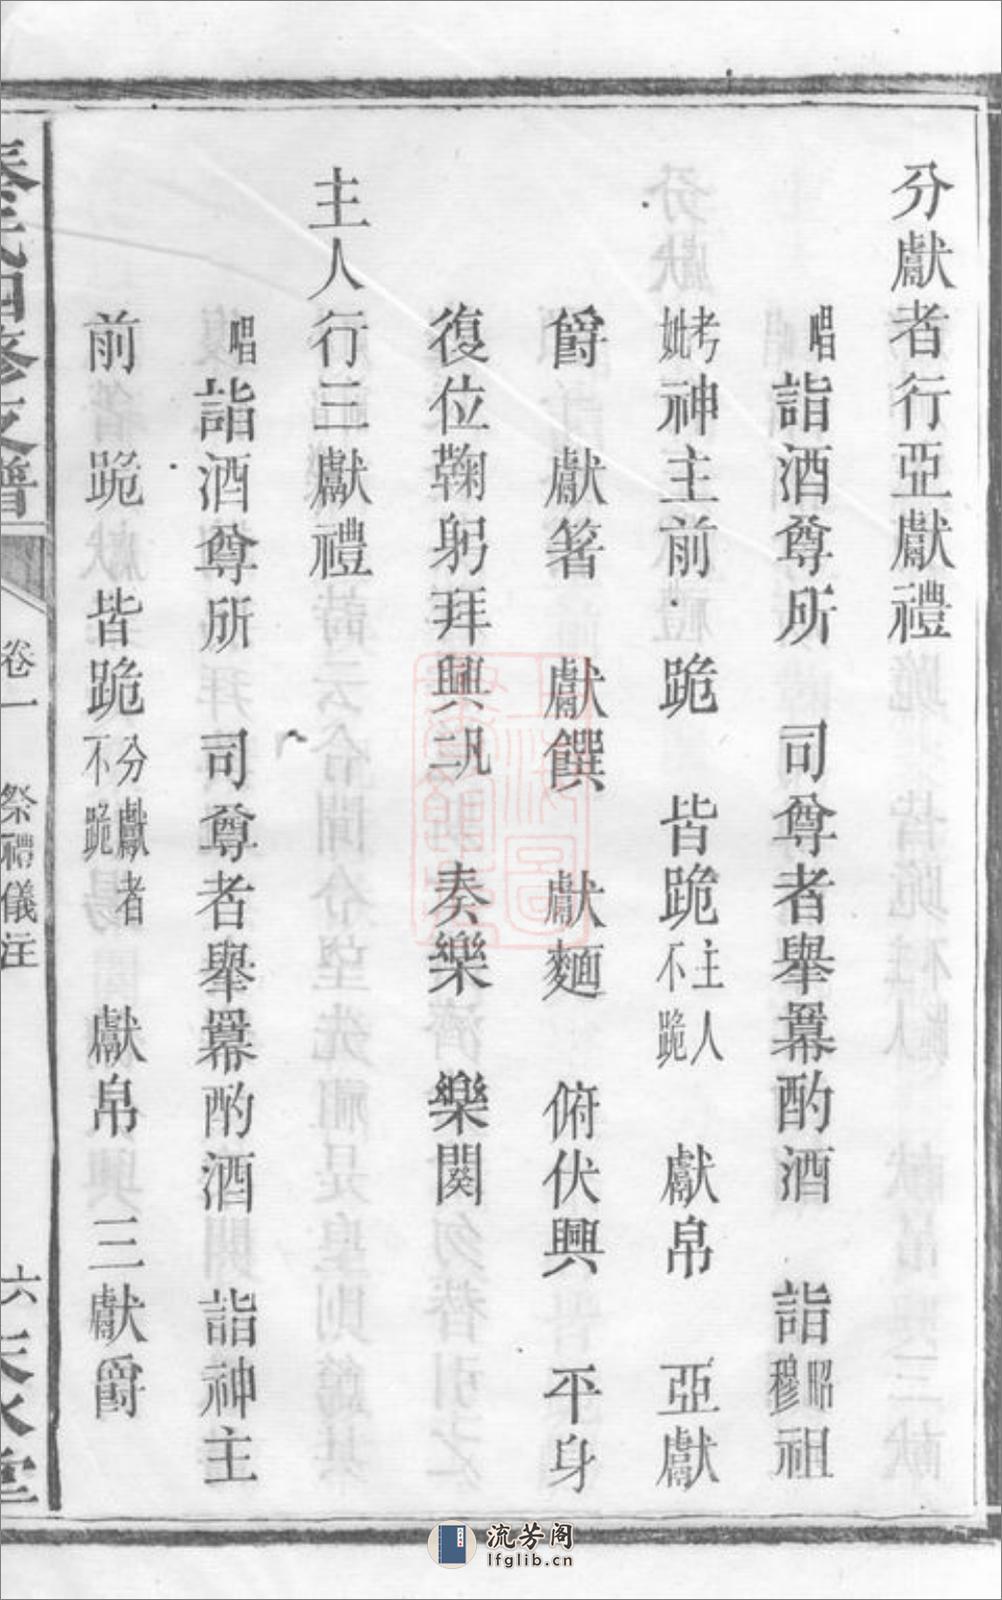 分獻者行亞獻禮
唱詣酒尊所 司尊者舉羃酌酒 詣昭穆祖
考妣神主前 跪 皆跪主人不跪 獻帛 亞獻
爵 獻箸 獻饌 獻麵 俯伏興 平身
復位鞠躬拜興 奏樂 樂闋
主人行三獻禮
唱詣酒尊所 司尊者舉羃酌酒 詣神主
前 跪 皆跪分獻者不跪 獻帛 三獻爵
秦氏四修支譜 卷一 祭禮儀注 六 天水堂
流芳阁
lfglib.cn